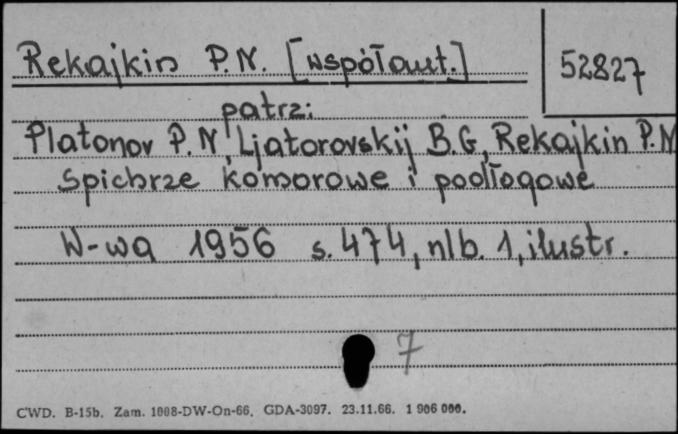 Rekajkin P.N. [współaut.]
52827
patrz:
Platonov P.N, Ljatorovskij B.G, Rekajkin P.N
Spichrze komorowe i podłogowe
W-wa 1956 s. 474, nlb. 1, ilustr.
7
CWD. B-15b. Zam. 1008-DW-On-66. GDA-3097. 23.11.66. 1 906 000.